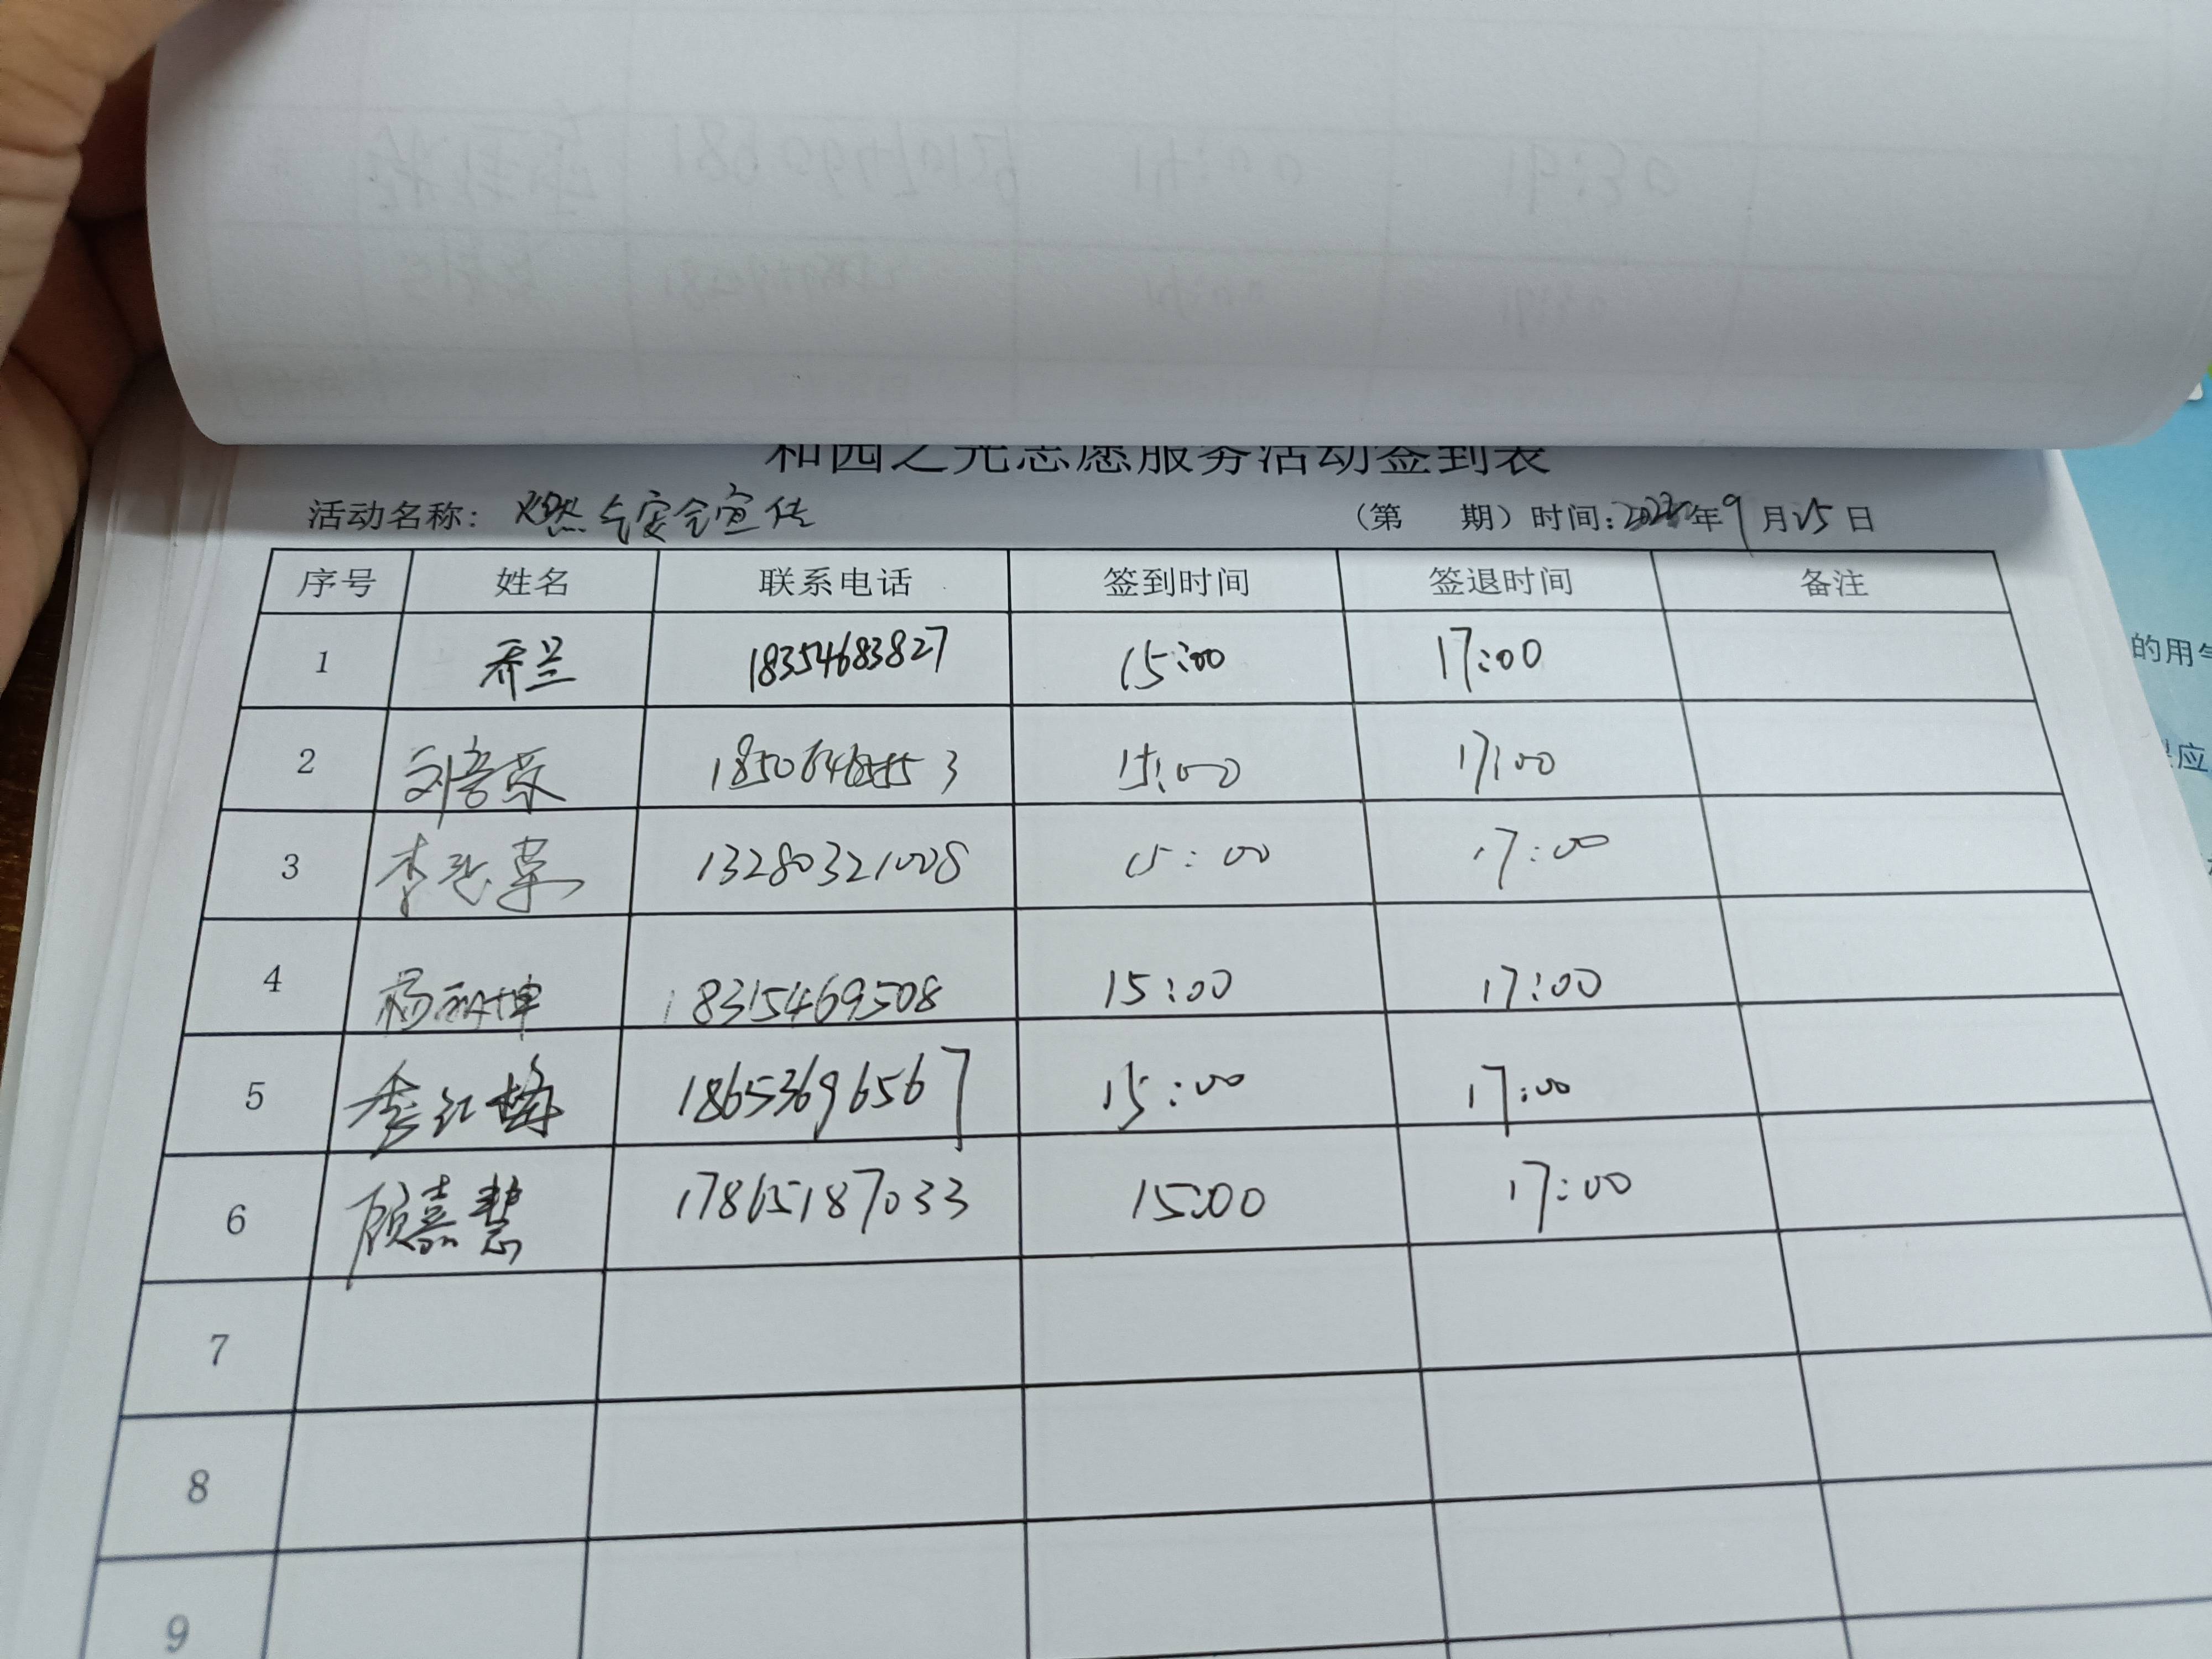 和园之光志愿服务活动签到表
活动名称: 燃气安全宣传 (第 期) 时间: 年9月25日
序号 姓名 联系电话 签到时间 签退时间 备注
1 乔兰 18354683827 15:00 17:00
2 刘 15:00 17:00
3 李 13280321008 15:00 17:00
4 杨 坤 18315469508 15:00 17:00
5 李红梅 18653696567 15:00 17:00
6 顾嘉慧 17865187033 15:00 17:00
7
8
9
的用气
应